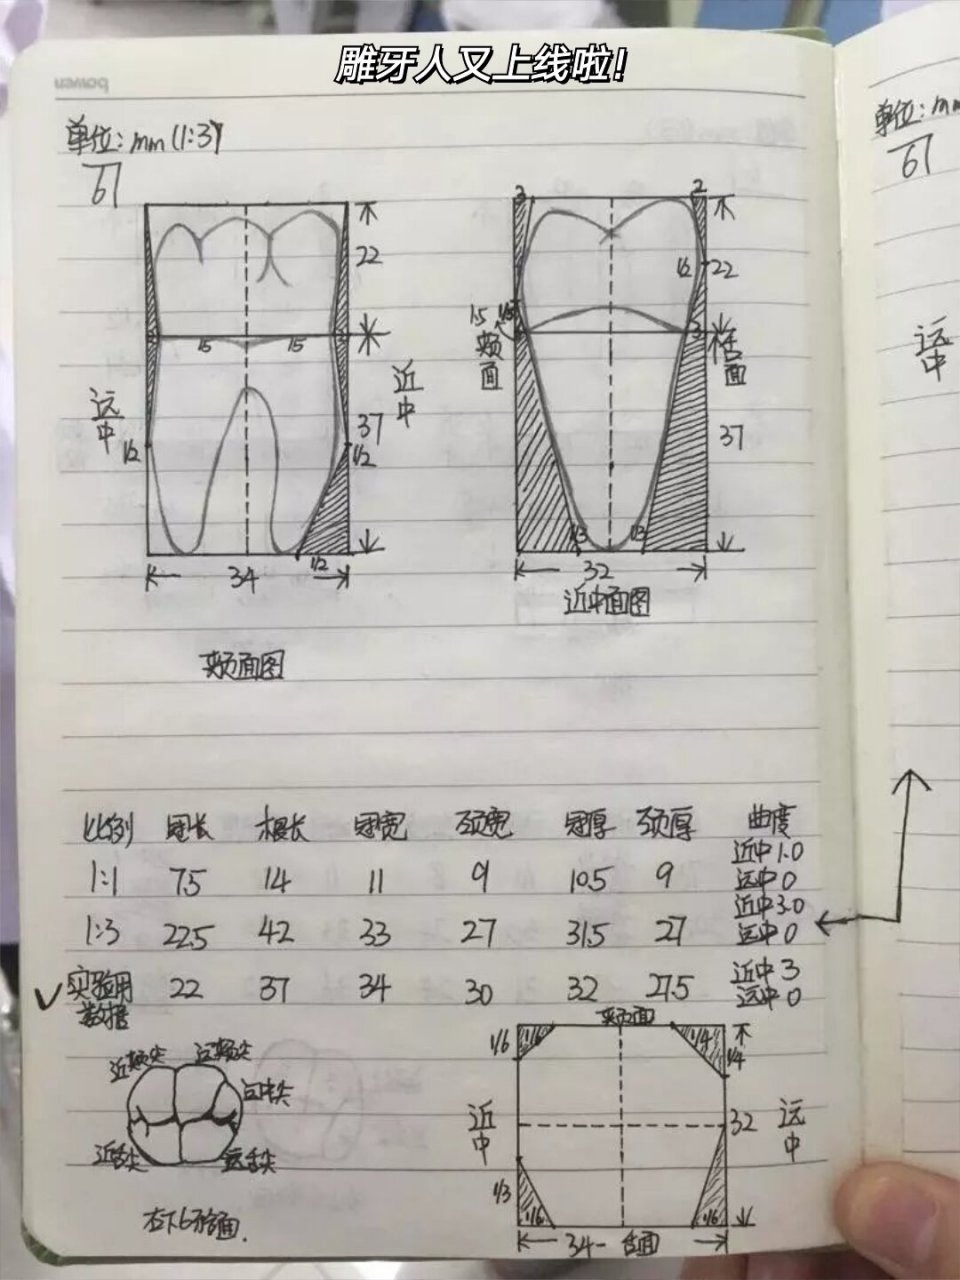 雕牙人又上线啦!
bowen
单位:mm(1:3)
6
单位:mm
6
3
2
22
1/2
22
15
15
1.5
1/3
颊面
3
舌面
远中
近中
远中
1/2
37
1/2
37
1/3
1/3
34
1/2
32
近中面图
颊面图
比例 冠长 根长 冠宽 颈宽 冠厚 颈厚 曲度
1:1 7.5 14 11 9 10.5 9 近中1.0 远中0
1:3 22.5 42 33 27 31.5 27 近中3.0 远中0
✓实验用数据 22 37 34 30 32 27.5 近中3 远中0
近颊尖
远颊尖
远中尖
近舌尖
远舌尖
右下6𬌗面.
颊面
1/6
1/6
1/4
1/4
近中
32
远中
1/3
1/6
1/6
34
舌面